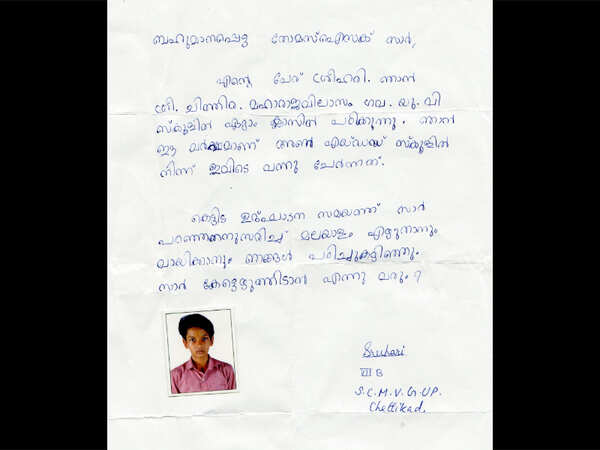 ബഹുമാനപ്പെട്ട തോമസ്ഐസക് സാർ,
എന്റെ പേര് ശ്രീഹരി. ഞാൻ
ശ്രീ. ചിത്തിര. മഹാരാജവിലാസം ഗവ. യു. പി
സ്കൂളിൽ ഏഴാം ക്ലാസിൽ പഠിക്കുന്നു. ഞാൻ
ഈ വർഷമാണ് അൺ എയ്ഡഡ് സ്കൂളിൽ
നിന്ന് ഇവിടെ വന്നു ചേർന്നത്.
കെട്ടിട ഉദ്ഘാടന സമയത്ത് സാർ
പറഞ്ഞതനുസരിച്ച് മലയാളം എഴുതാനും
വായിക്കാനും ഞങ്ങൾ പഠിച്ചുകഴിഞ്ഞു.
സാർ കേട്ടെഴുത്തിടാൻ എന്നു വരും. ?
Sreehari
VII B
S.C.M.V.G.UP.
Chettikad,